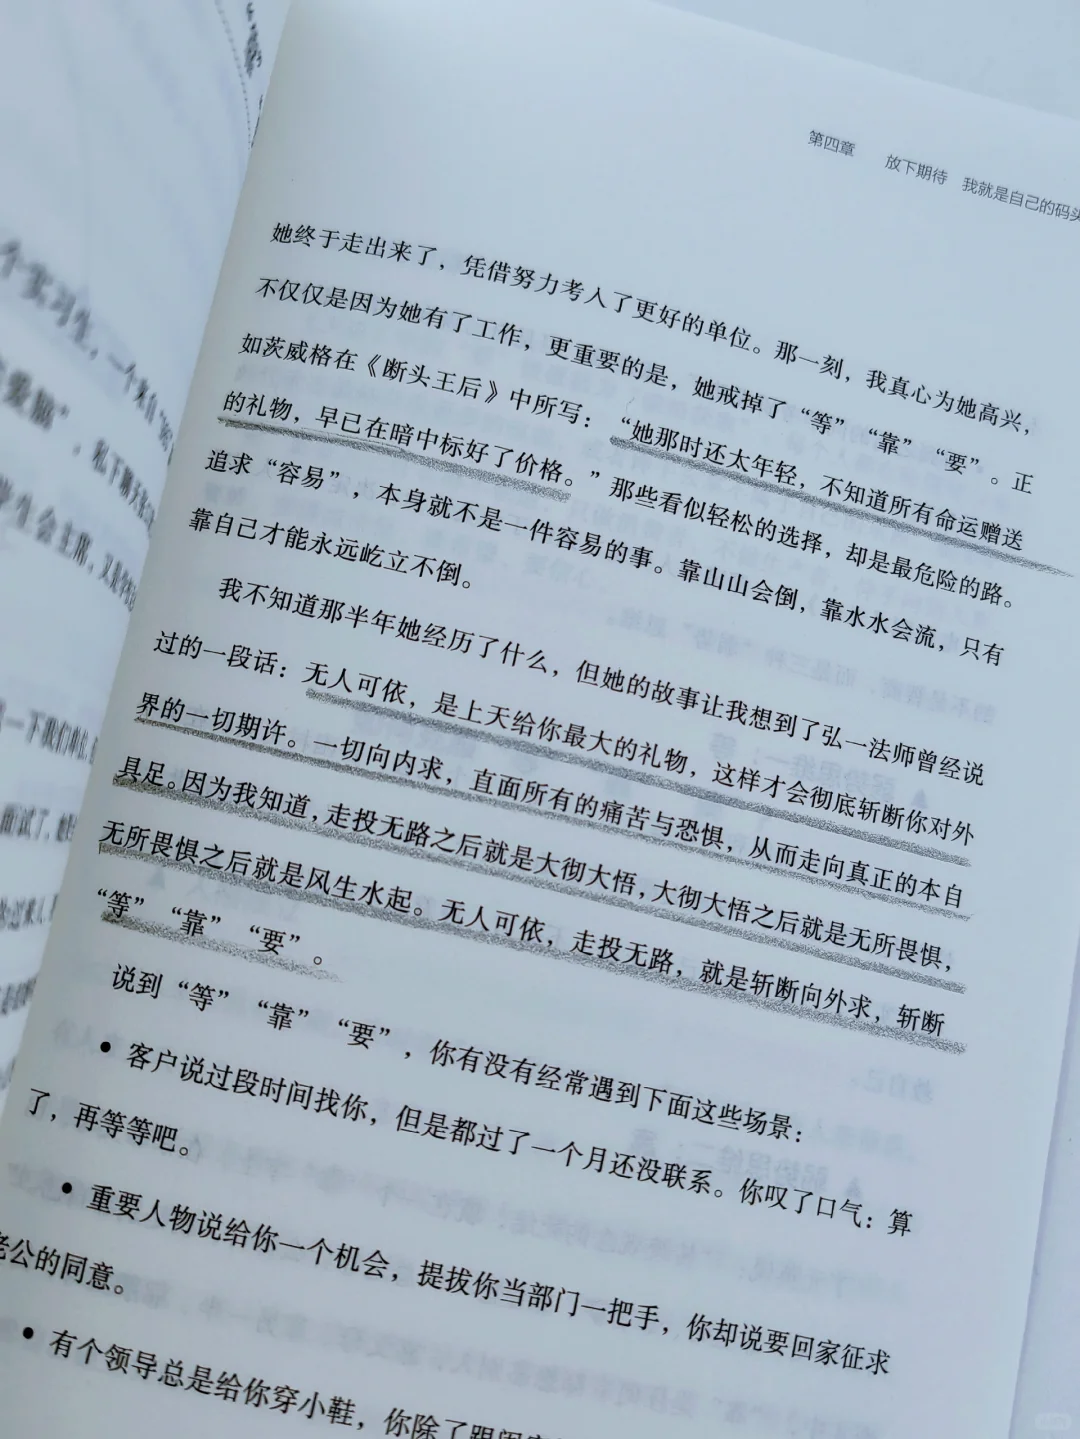 第四章 放下期待 我就是自己的码头
她终于走出来了，凭借努力考入了更好的单位。那一刻，我真心为她高兴，
不仅仅是因为她有了工作，更重要的是，她戒掉了“等”“靠”“要”。正
如茨威格在《断头王后》中所写：“她那时还太年轻，不知道所有命运赠送
的礼物，早已在暗中标好了价格。”那些看似轻松的选择，却是最危险的路。
追求“容易”，本身就不是一件容易的事。靠山山会倒，靠水水会流，只有
靠自己才能永远屹立不倒。
我不知道那半年她经历了什么，但她的故事让我想到了弘一法师曾经说
过的一段话：无人可依，是上天给你最大的礼物，这样才会彻底斩断你对外
界的一切期许。一切向内求，直面所有的痛苦与恐惧，从而走向真正的本自
具足。因为我知道，走投无路之后就是大彻大悟，大彻大悟之后就是无所畏惧，
无所畏惧之后就是风生水起。无人可依，走投无路，就是斩断向外求，斩断
“等”“靠”“要”。
说到“等”“靠”“要”，你有没有经常遇到下面这些场景：
• 客户说过段时间找你，但是都过了一个月还没联系。你叹了口气：算
了，再等等吧。
• 重要人物说给你一个机会，提拔你当部门一把手，你却说要回家征求
老公的同意。
• 有个领导总是给你穿小鞋，你除了跟闺
个实习生，一个来自
”，私下聊天
学生会主席，又是
一下我们单位
面试了，